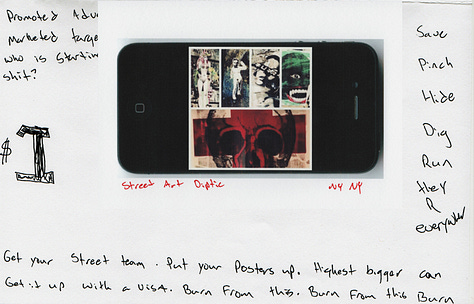 Promoted Adv
Marketed targe
who is startin
shit?
$1
Save
Pinch
Hide
Dig
Run
they
R
everywher
Street Art Diptic
NY NY
Get your Street team. Put your Posters up. Highest bigger can
Get it up with a VISA. Burn From this. Burn From this Burn